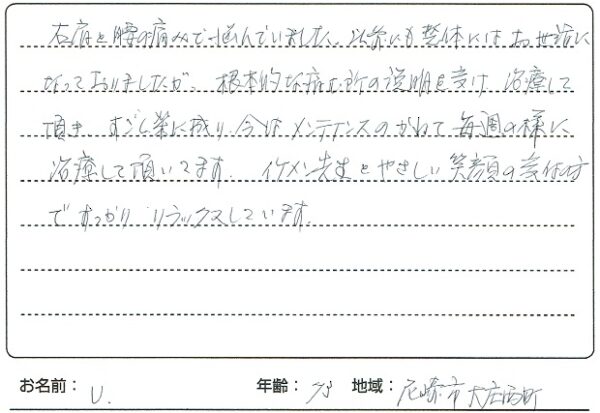 右肩と腰の痛みで悩んでいました。以前にも整体にはお世話に
なっておりましたが、根本的な病む所の説明を受け、治療して
頂き すごく楽に成り、今はメンテナンスのかねて毎週の様に
治療して頂いてます。 イケメン先生とやさしい笑顔の受付の方
ですっかりリラックスしています。
お名前： U. 年齢： 73 地域： 尼崎市大庄西町